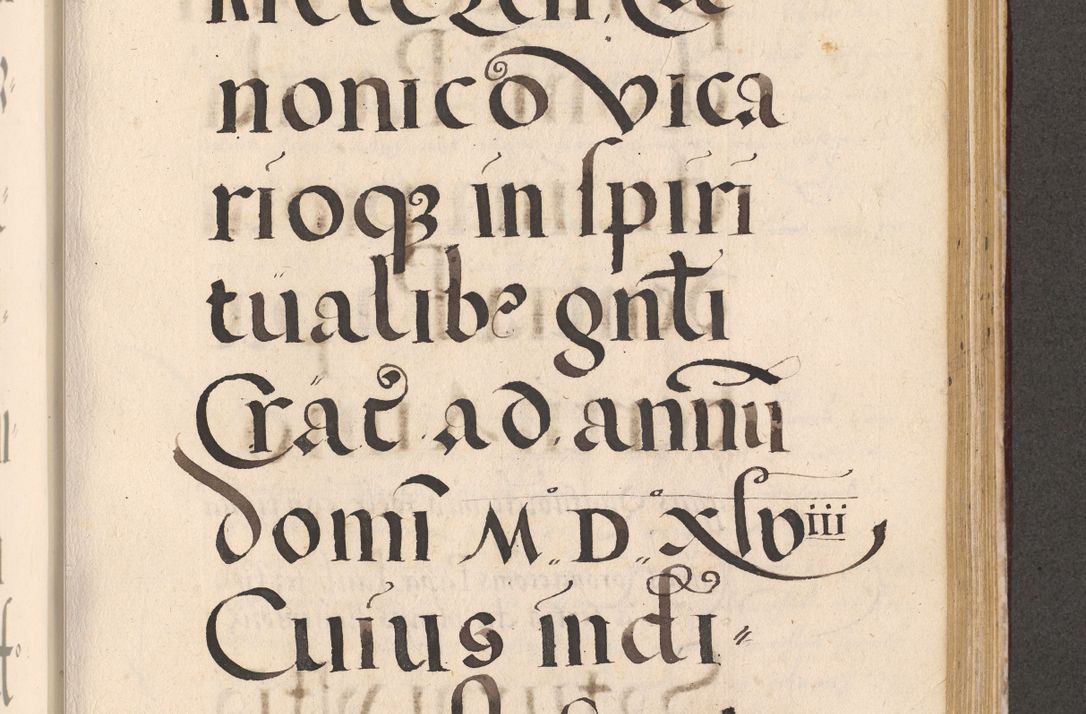 nonico Vica
rioqꝫ in spiri
tualibꝰ gn̄li
Crac̄ ad annū
domī M. D. xlviii
Cuius indi⸗